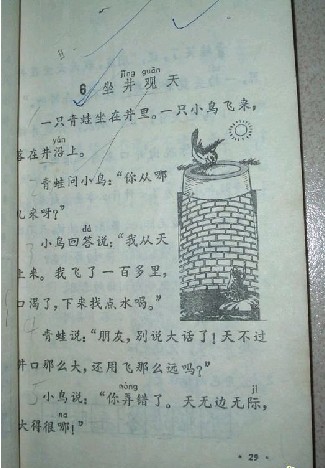 jǐng guān
6 坐井观天
一只青蛙坐在井里。一只小鸟飞来,
yán
落在井沿上。
青蛙问小鸟:“你从哪
儿来呀?”
dá
小鸟回答说:“我从天
上来。我飞了一百多里,
口渴了,下来找点水喝。”
青蛙说:“朋友,别说大话了!天不过
井口那么大,还用飞那么远吗?”
nòng jì
小鸟说:“你弄错了。天无边无际,
na
大得很哪!”
· 29 ·